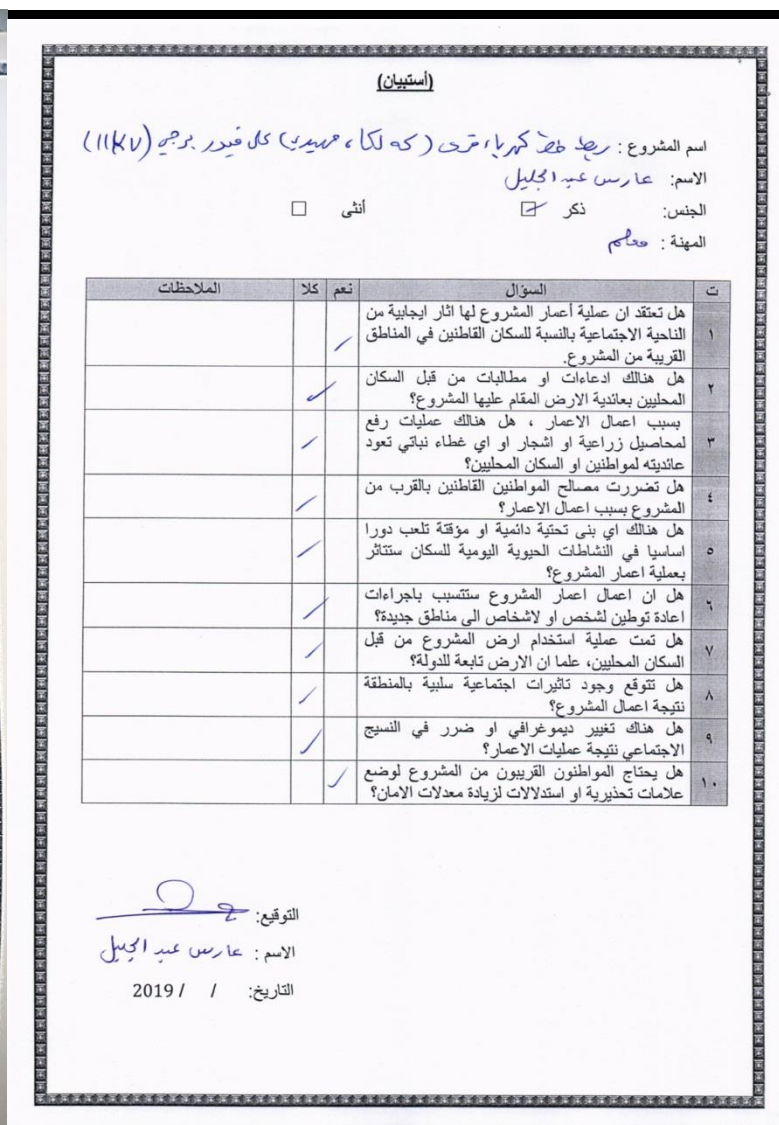 (أستبيان)
اسم المشروع : ربط خط كهرباء قرى (كه لكا ، مهيدي) على فيدر برجي (11KV)
الاسم: عارس عبد الجليل
الجنس: ذكر ☑ أنثى □
المهنة : معلم
ت السؤال نعم كلا الملاحظات
١ هل تعتقد ان عملية أعمار المشروع لها اثار ايجابية من
الناحية الاجتماعية بالنسبة للسكان القاطنين في المناطق ✓
القريبة من المشروع.
٢ هل هنالك ادعاءات او مطالبات من قبل السكان
المحليين بعائدية الارض المقام عليها المشروع؟ ✓
بسبب اعمال الاعمار ، هل هنالك عمليات رفع
٣ لمحاصيل زراعية او اشجار او اي غطاء نباتي تعود ✓
عائديته لمواطنين او السكان المحليين؟
٤ هل تضررت مصالح المواطنين القاطنين بالقرب من
المشروع بسبب اعمال الاعمار؟ ✓
هل هنالك اي بنى تحتية دائمية او مؤقتة تلعب دورا
٥ اساسيا في النشاطات الحيوية اليومية للسكان ستتاثر ✓
بعملية اعمار المشروع؟
٦ هل ان اعمال اعمار المشروع ستتسبب باجراءات
اعادة توطين لشخص او لاشخاص الى مناطق جديدة؟ ✓
٧ هل تمت عملية استخدام ارض المشروع من قبل
السكان المحليين، علما ان الارض تابعة للدولة؟ ✓
٨ هل تتوقع وجود تاثيرات اجتماعية سلبية بالمنطقة
نتيجة اعمال المشروع؟ ✓
٩ هل هناك تغيير ديموغرافي او ضرر في النسيج
الاجتماعي نتيجة عمليات الاعمار؟ ✓
١٠ هل يحتاج المواطنون القريبون من المشروع لوضع
علامات تحذيرية او استدلالات لزيادة معدلات الامان؟ ✓
التوقيع:
الاسم : عارس عبد الجليل
التاريخ: / / 2019